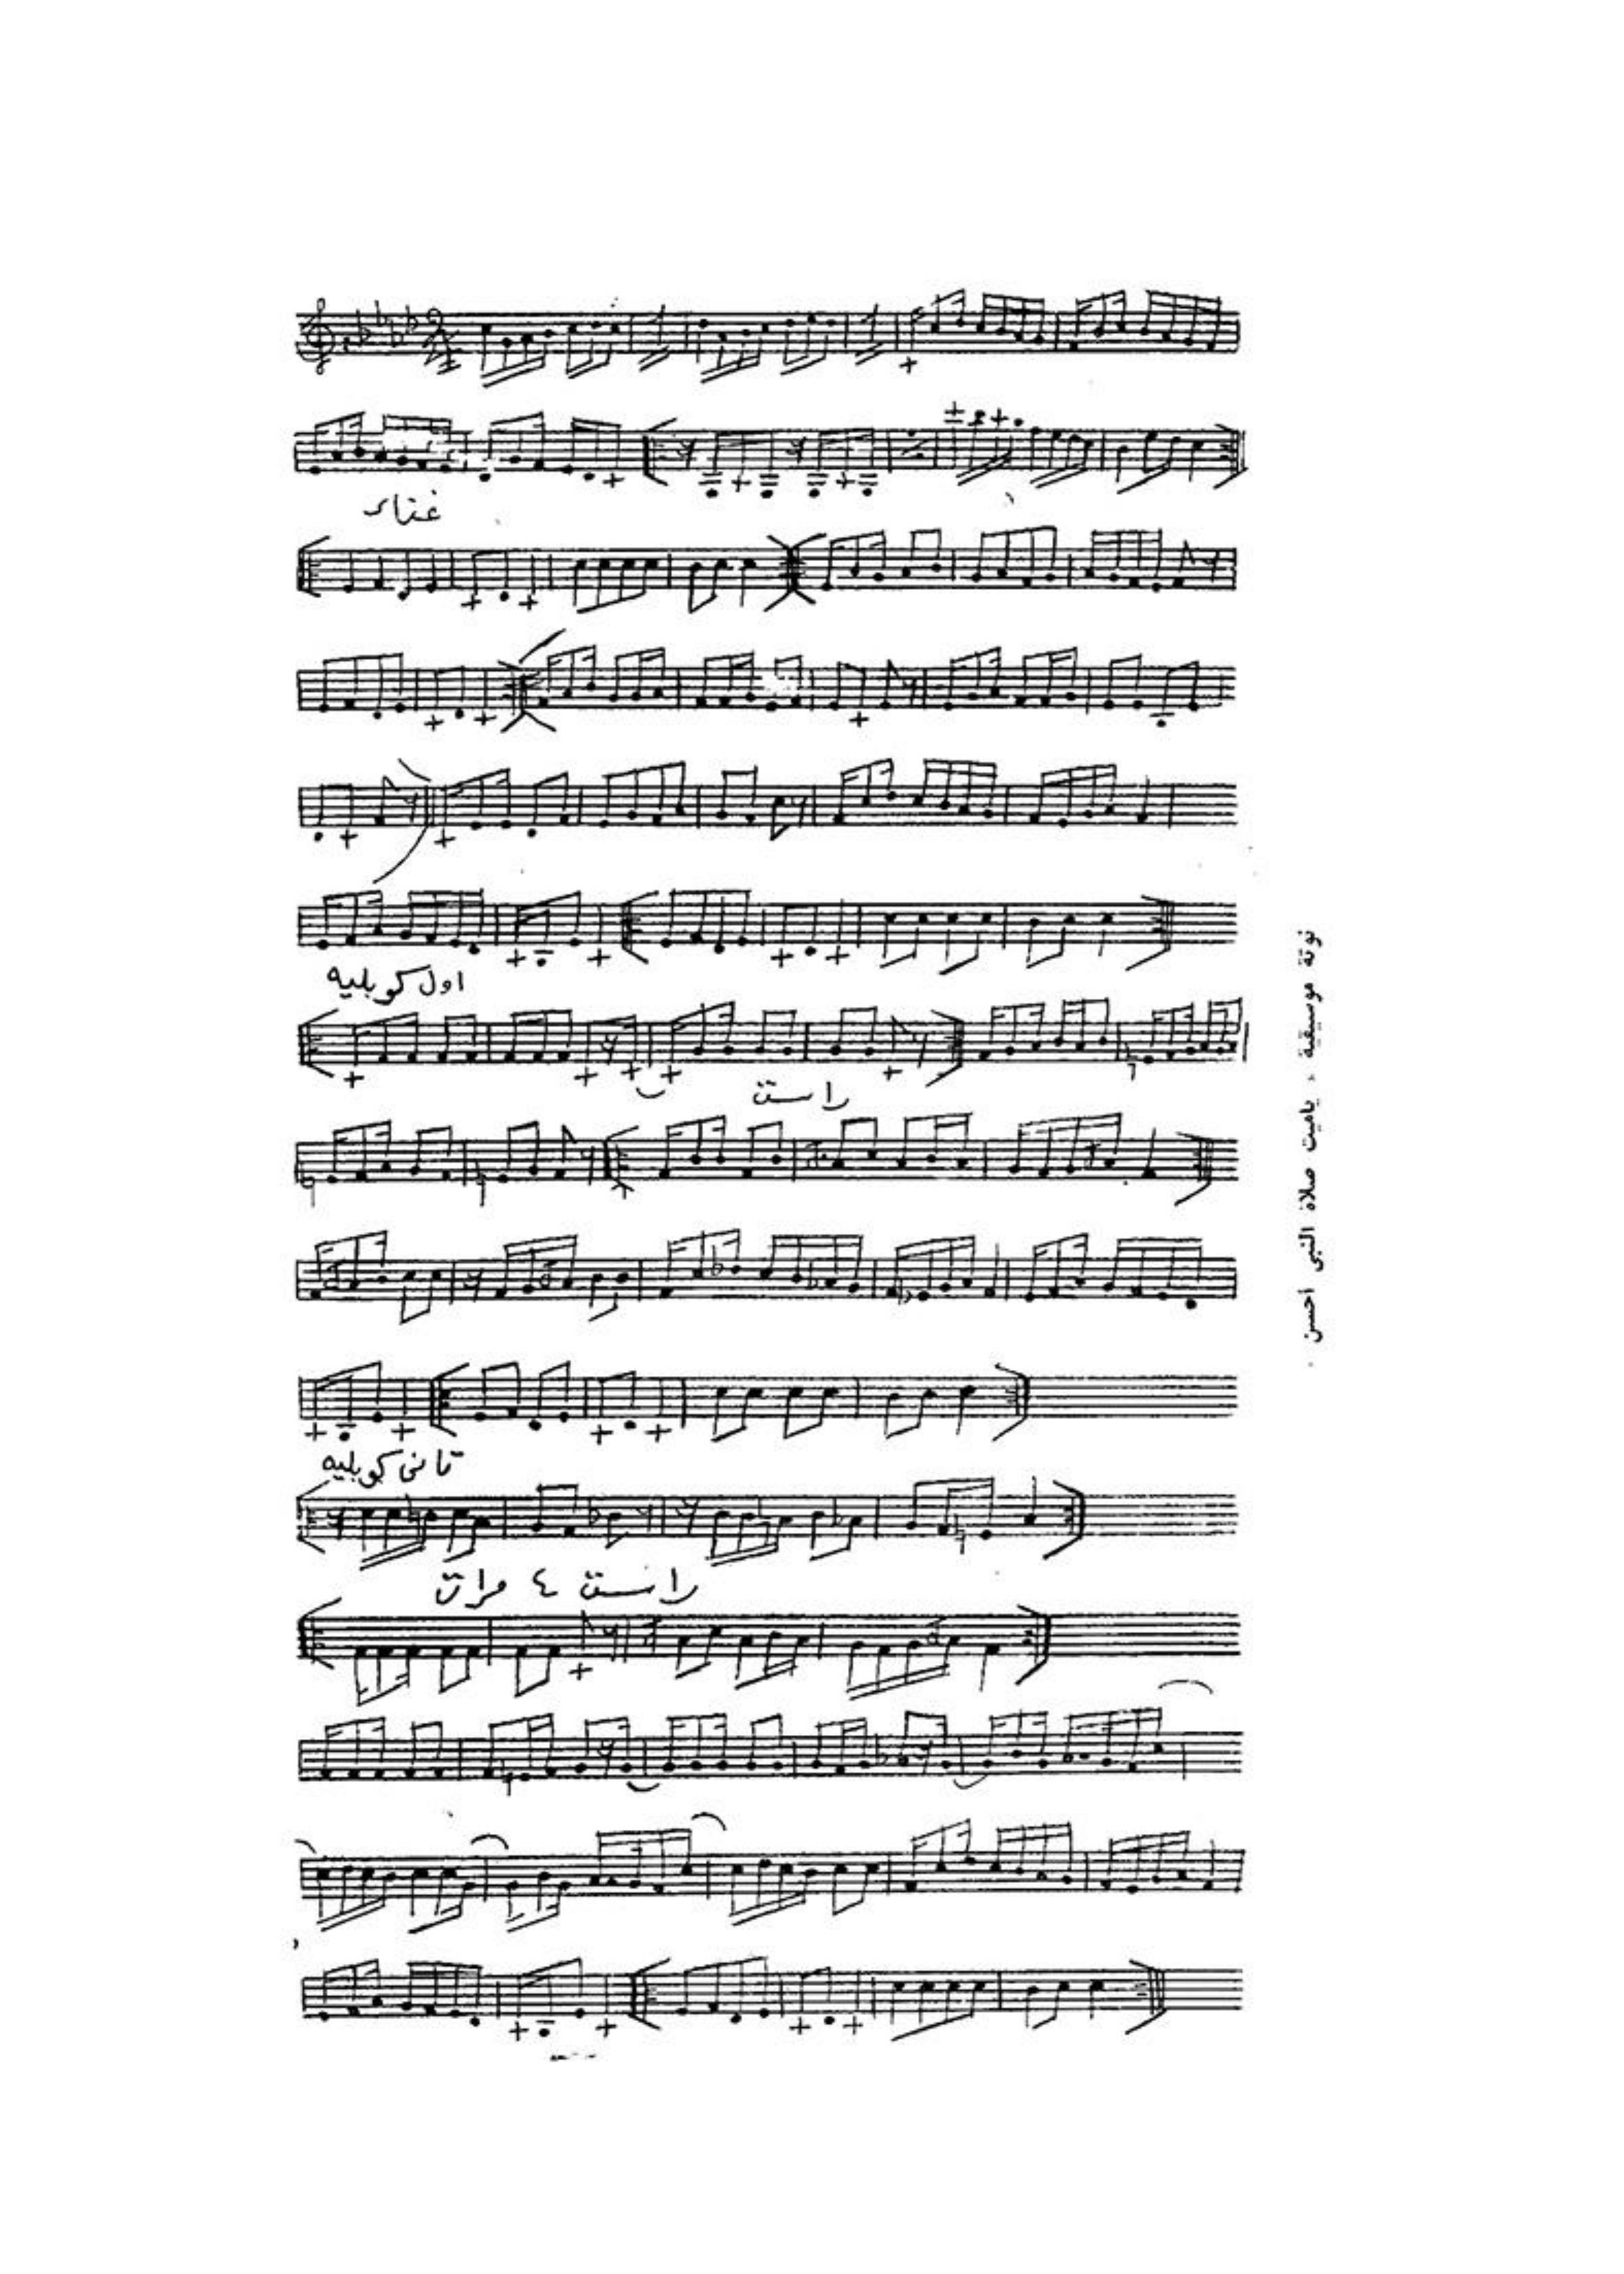 غناء
اول كوبليه
راست
تانى كوبليه
راست ٤ مرات
نوتة موسيقية ، ياميت صلاة النبى أحسن